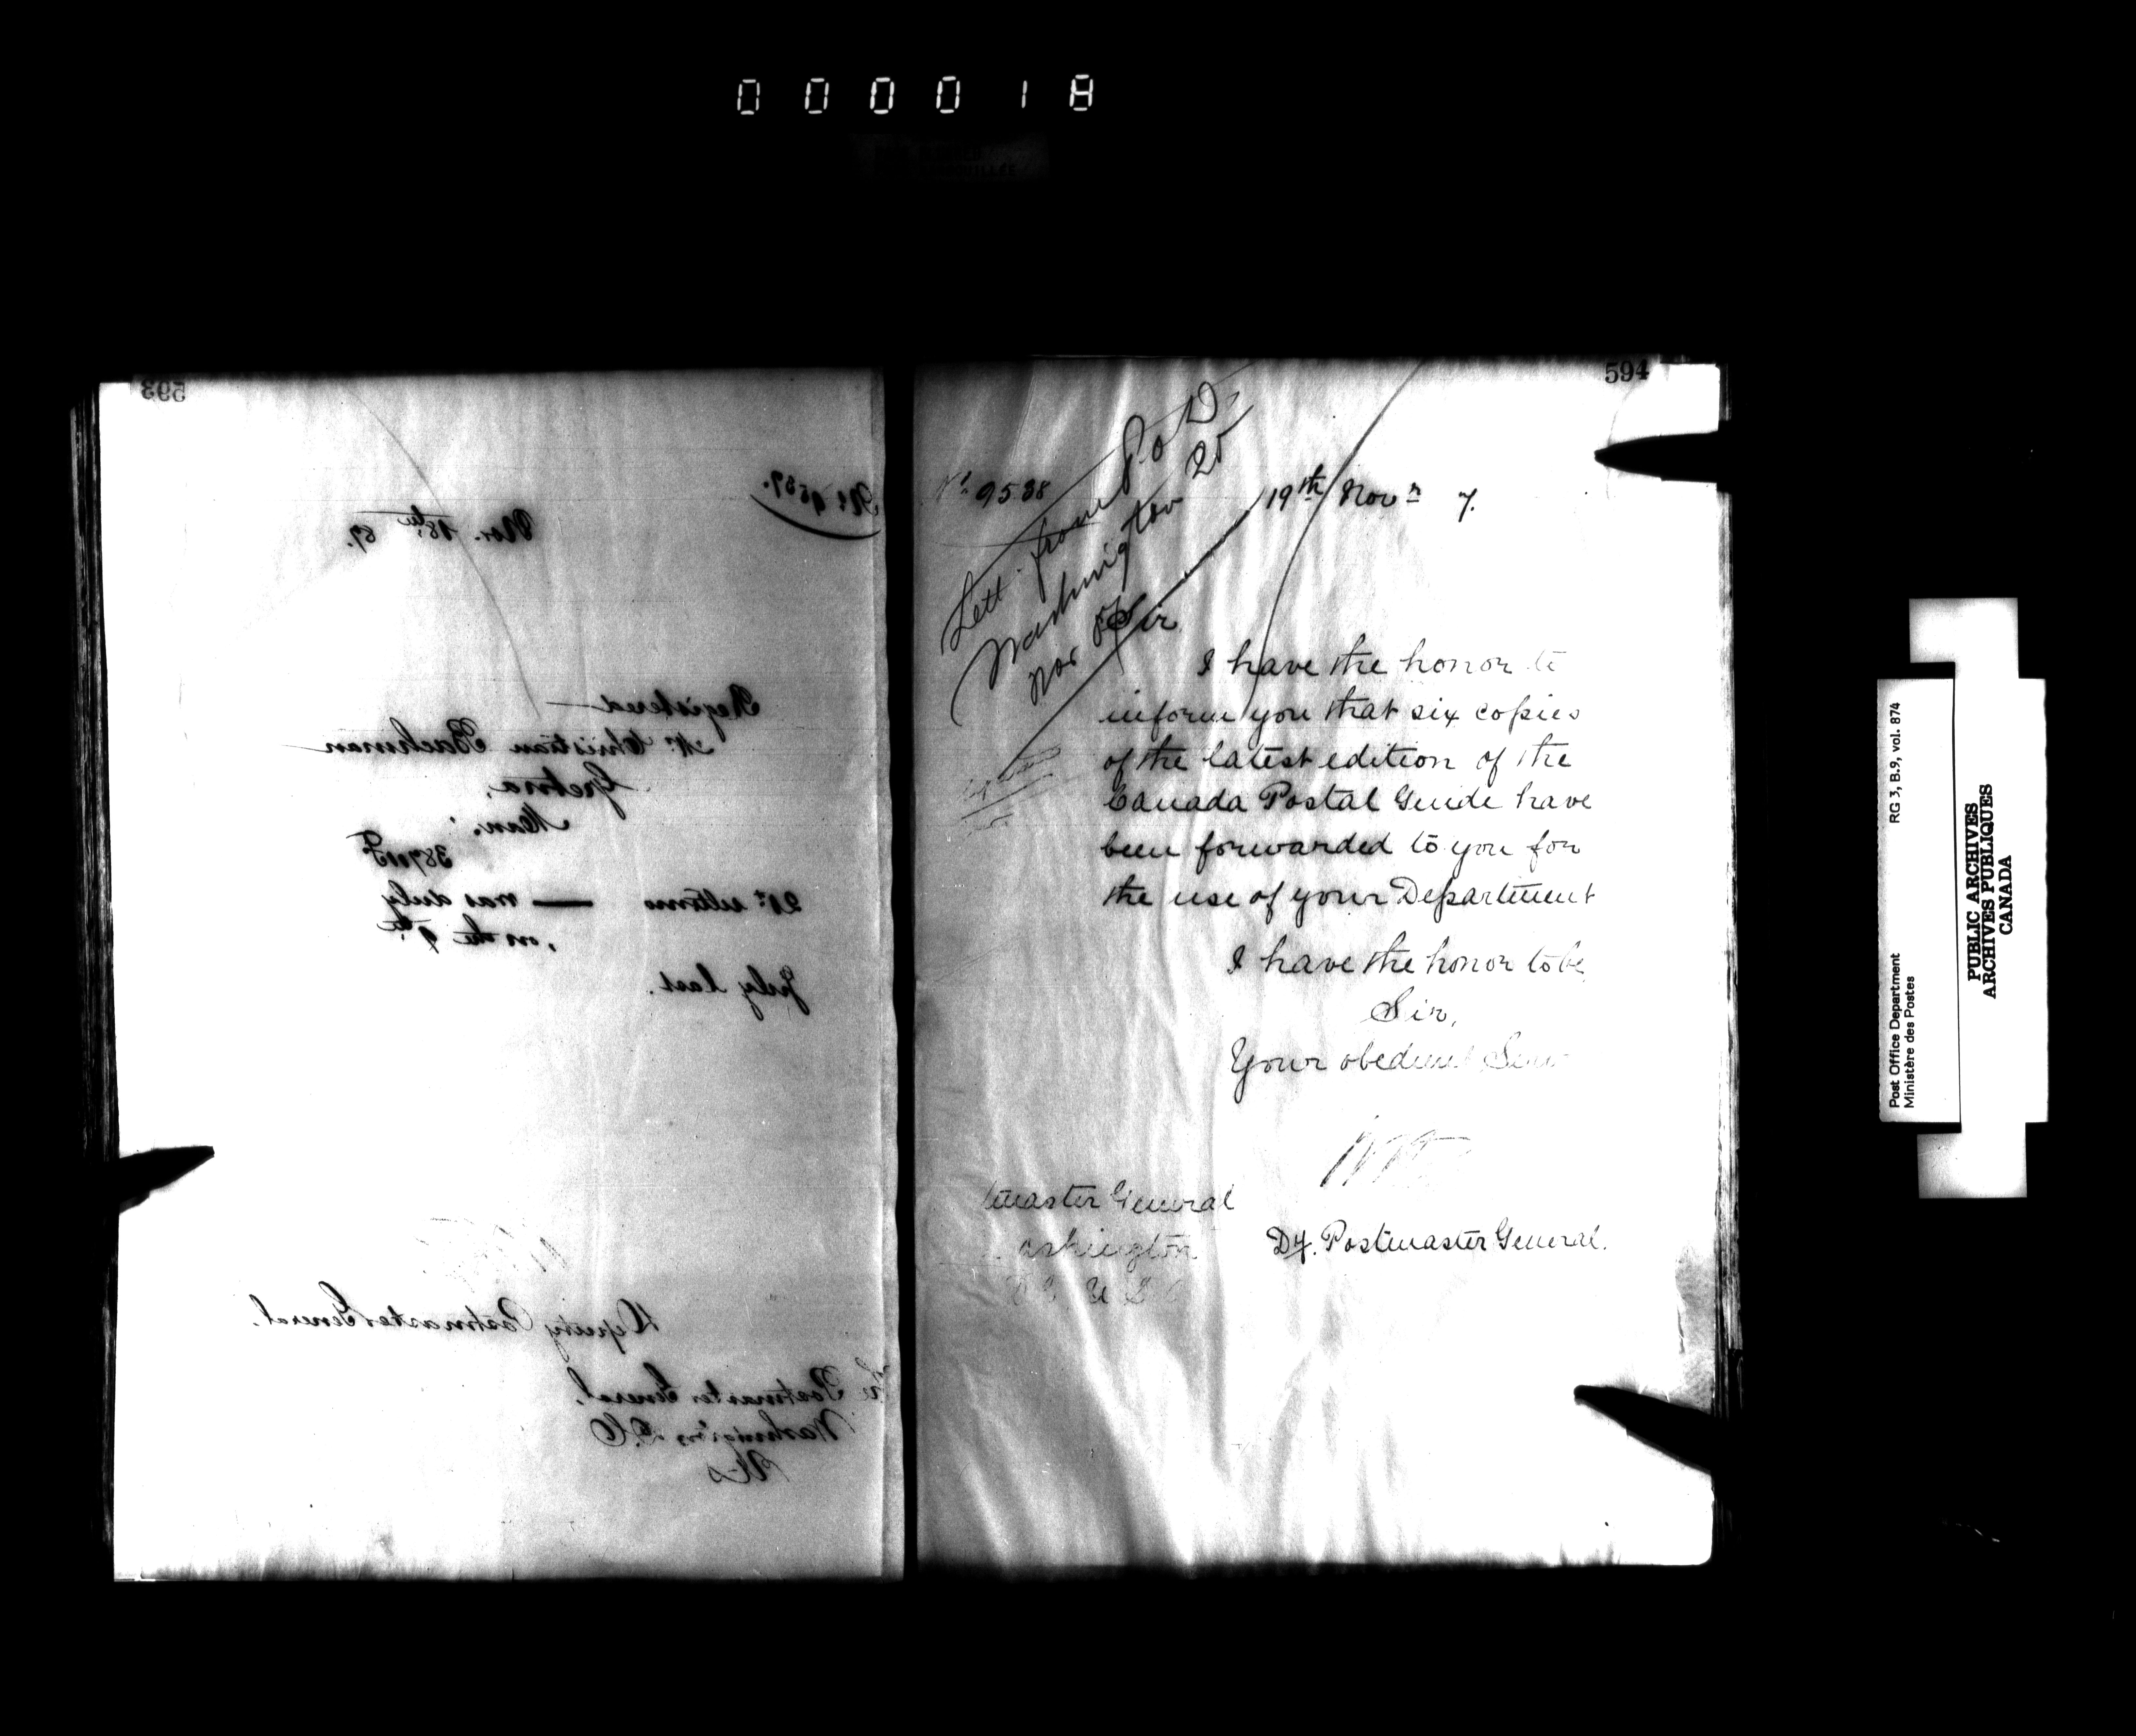 000018
593
No. 9537.
Nov. 18th, 87.
Registered
Mr. Christian Bachman
Gretna,
Man.
21st ultimo — was duly
, on the 9th
July last.
Deputy Postmaster General.
The Postmaster General,
Washington D.C
U S
594
No. 9538
19th Novr 7.
Lett. from P O D
Washington 25
Nov 87
Sir
I have the honor to
inform you that six copies
of the latest edition of the
Canada Postal Guide have
been forwarded to you for
the use of your Department
I have the honor to be
Sir,
Your obedient Serv
Dy. Postmaster General.
tmaster General
ashington
D C U S A
RG 3, B.9, vol. 874
Post Office Department
Ministère des Postes
PUBLIC ARCHIVES
ARCHIVES PUBLIQUES
CANADA